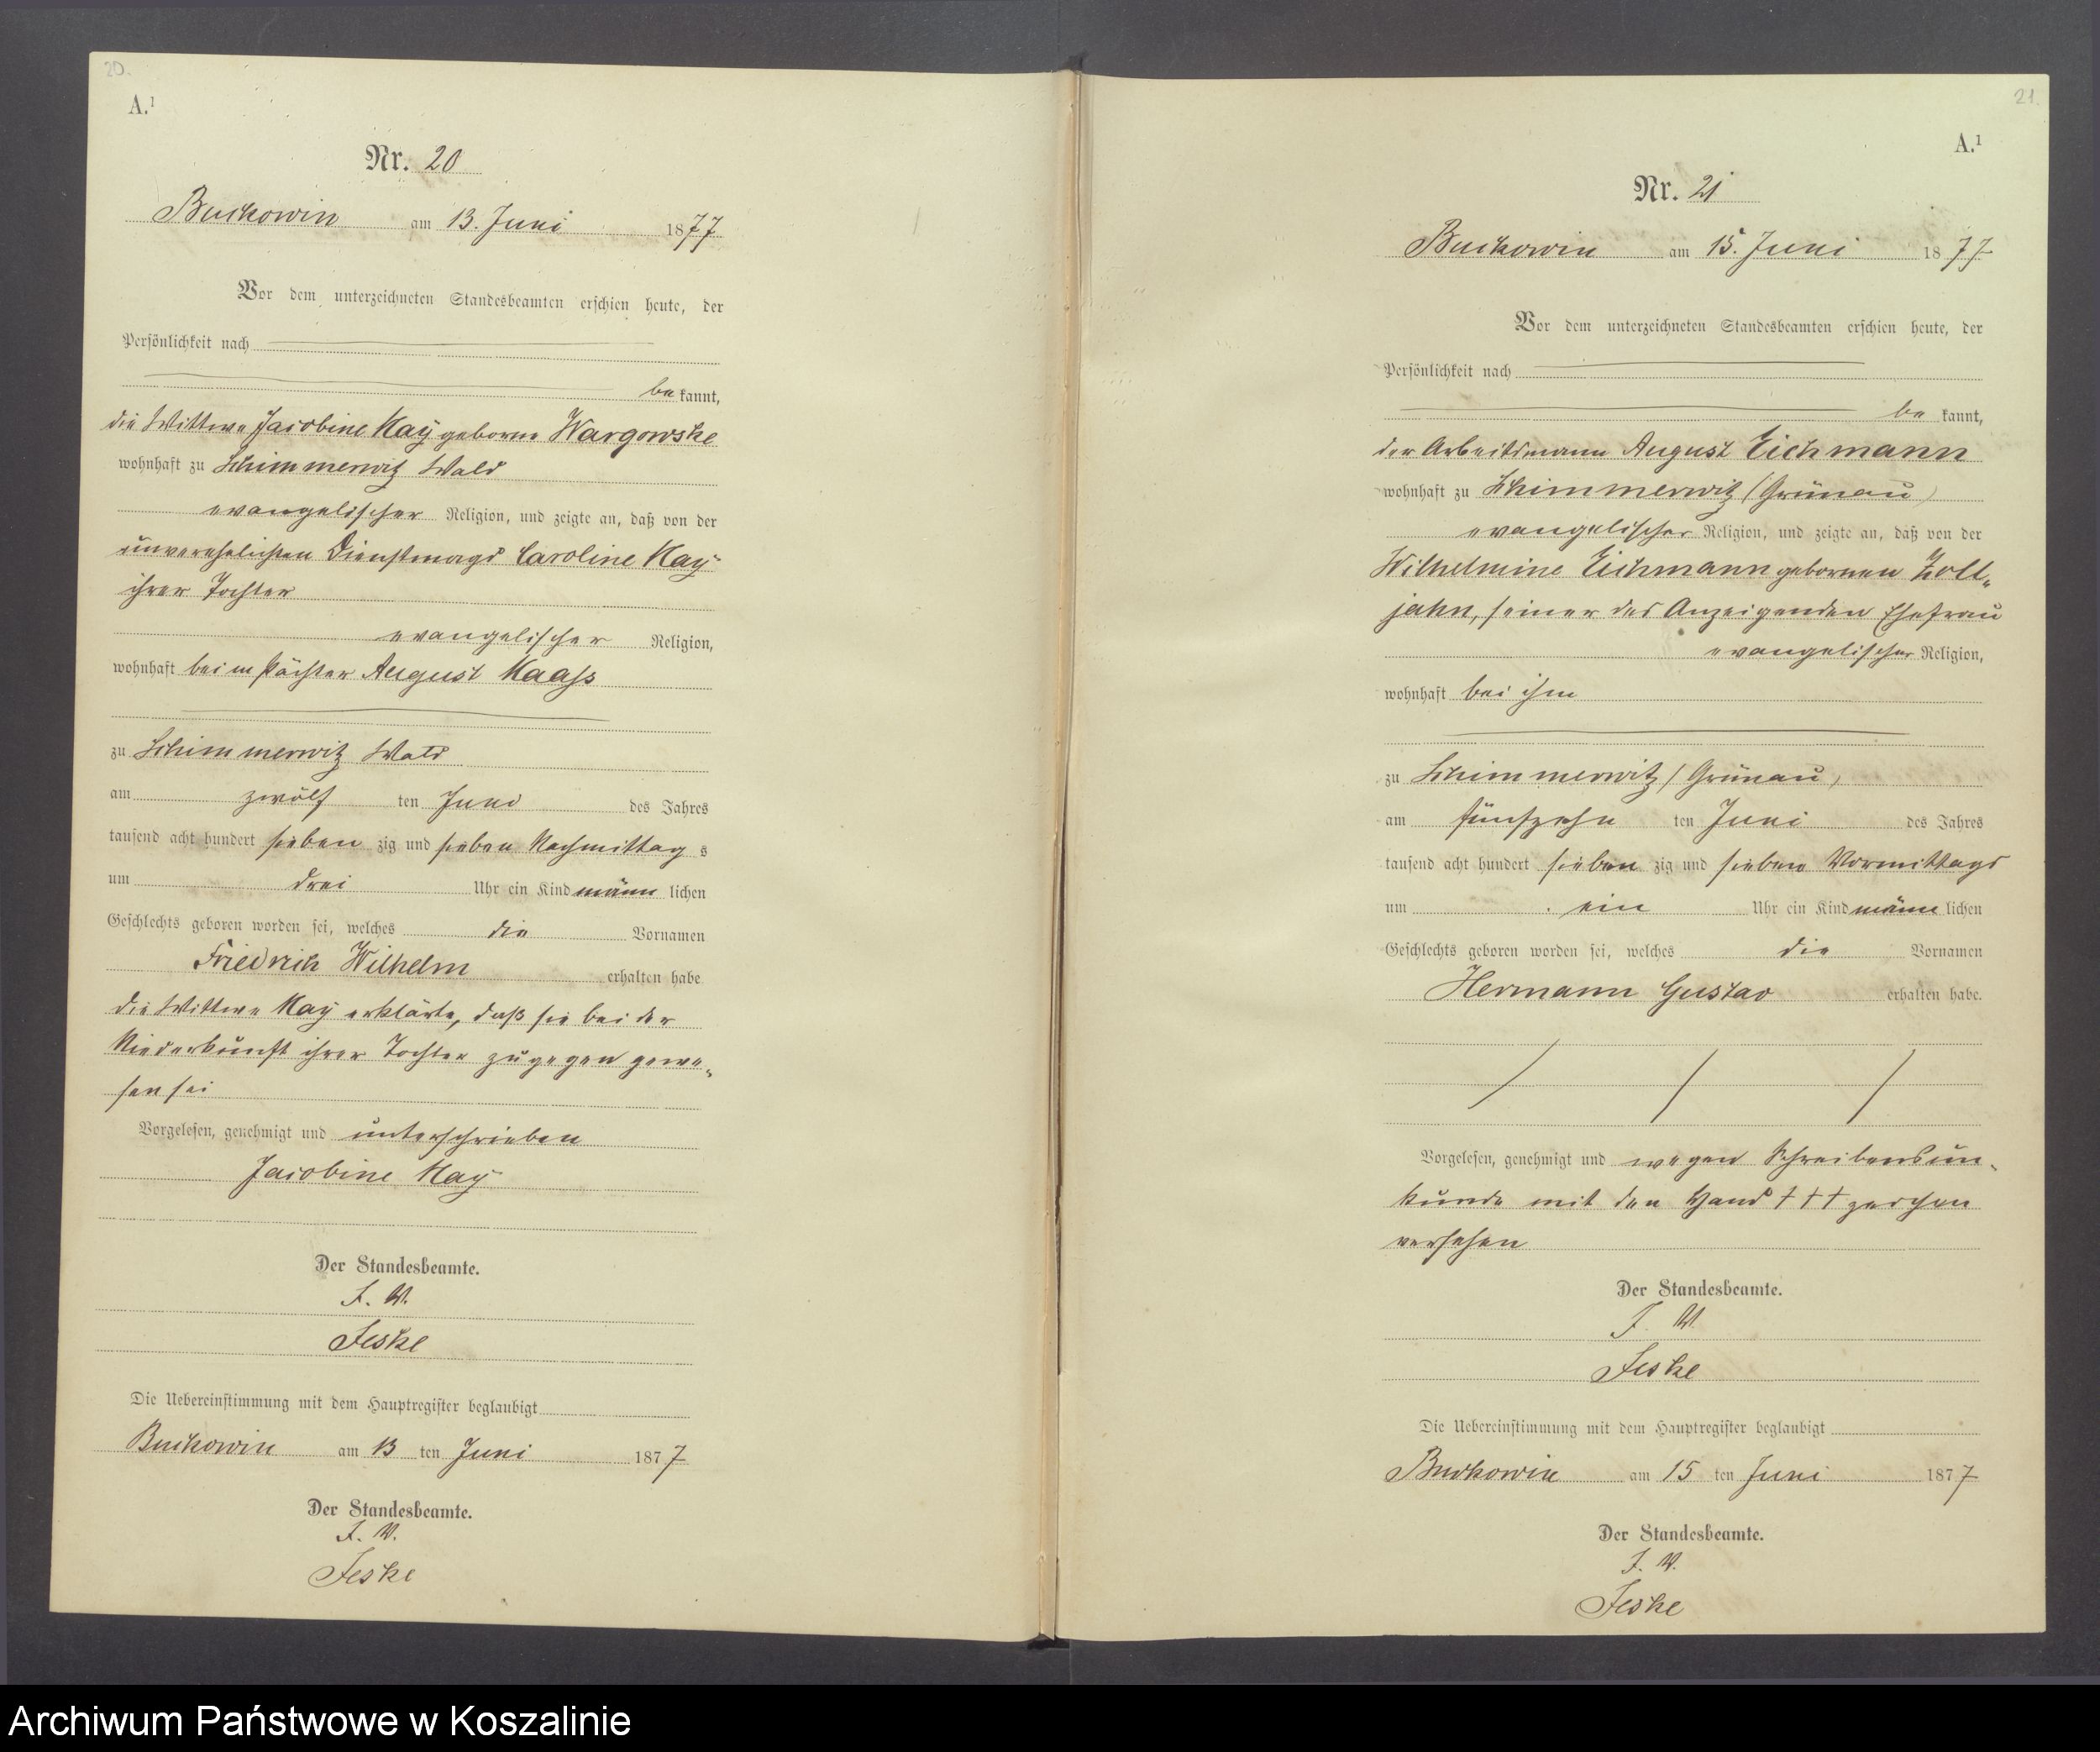 20.
A.¹
Nr. 20
Buckowin am 13. Juni 1877
Vor dem unterzeichneten Standesbeamten erschien heute, der
Persönlichkeit nach
be kannt,
die Wittwe Jacobine Kay geborne Wargowske
wohnhaft zu Schimmerwitz Wald
evangelischer Religion, und zeigte an, daß von der
unverehelichten Dienstmagd Caroline Kay
ihrer Tochter
evangelischer Religion,
wohnhaft beim Pächter August Kaass
zu Schimmerwitz Wald
am zwölf ten Juni des Jahres
tausend acht hundert sieben zig und sieben Nachmittag s
um drei Uhr ein Kind männ lichen
Geschlechts geboren worden sei, welches die Vornamen
Friedrich Wilhelm erhalten habe
die Wittwe Kay erklärte, daß sie bei der
Niederkunft ihrer Tochter zugegen gewe„
sen sei
Vorgelesen, genehmigt und unterschrieben
Jacobine Kay
Der Standesbeamte.
I. V.
Jeske
Die Uebereinstimmung mit dem Hauptregister beglaubigt
Buckowin am 13 ten Juni 1877
Der Standesbeamte.
I. V.
Jeske
21.
A.¹
Nr. 21
Buckowin am 15. Juni 1877
Vor dem unterzeichneten Standesbeamten erschien heute, der
Persönlichkeit nach
be kannt,
der Arbeitsmann August Eichmann
wohnhaft zu Schimmerwitz (Grünau)
evangelischer Religion, und zeigte an, daß von der
Wilhelmine Eichmann gebornen Zolt„
jahn, seiner des Anzeigenden Ehefrau
evangelischer Religion,
wohnhaft bei ihm
zu Schimmerwitz (Grünau)
am fünfzehn ten Juni des Jahres
tausend acht hundert sieben zig und sieben Vormittags
um ein Uhr ein Kind männ lichen
Geschlechts geboren worden sei, welches die Vornamen
Hermann Gustav erhalten habe.
Vorgelesen, genehmigt und wegen Schreibensun„
kunde mit den Hand +++ zeichen
versehen
Der Standesbeamte.
I. V.
Jeske
Die Uebereinstimmung mit dem Hauptregister beglaubigt
Buckowin am 15 ten Juni 1877
Der Standesbeamte.
I. V.
Jeske
Archiwum Państwowe w Koszalinie